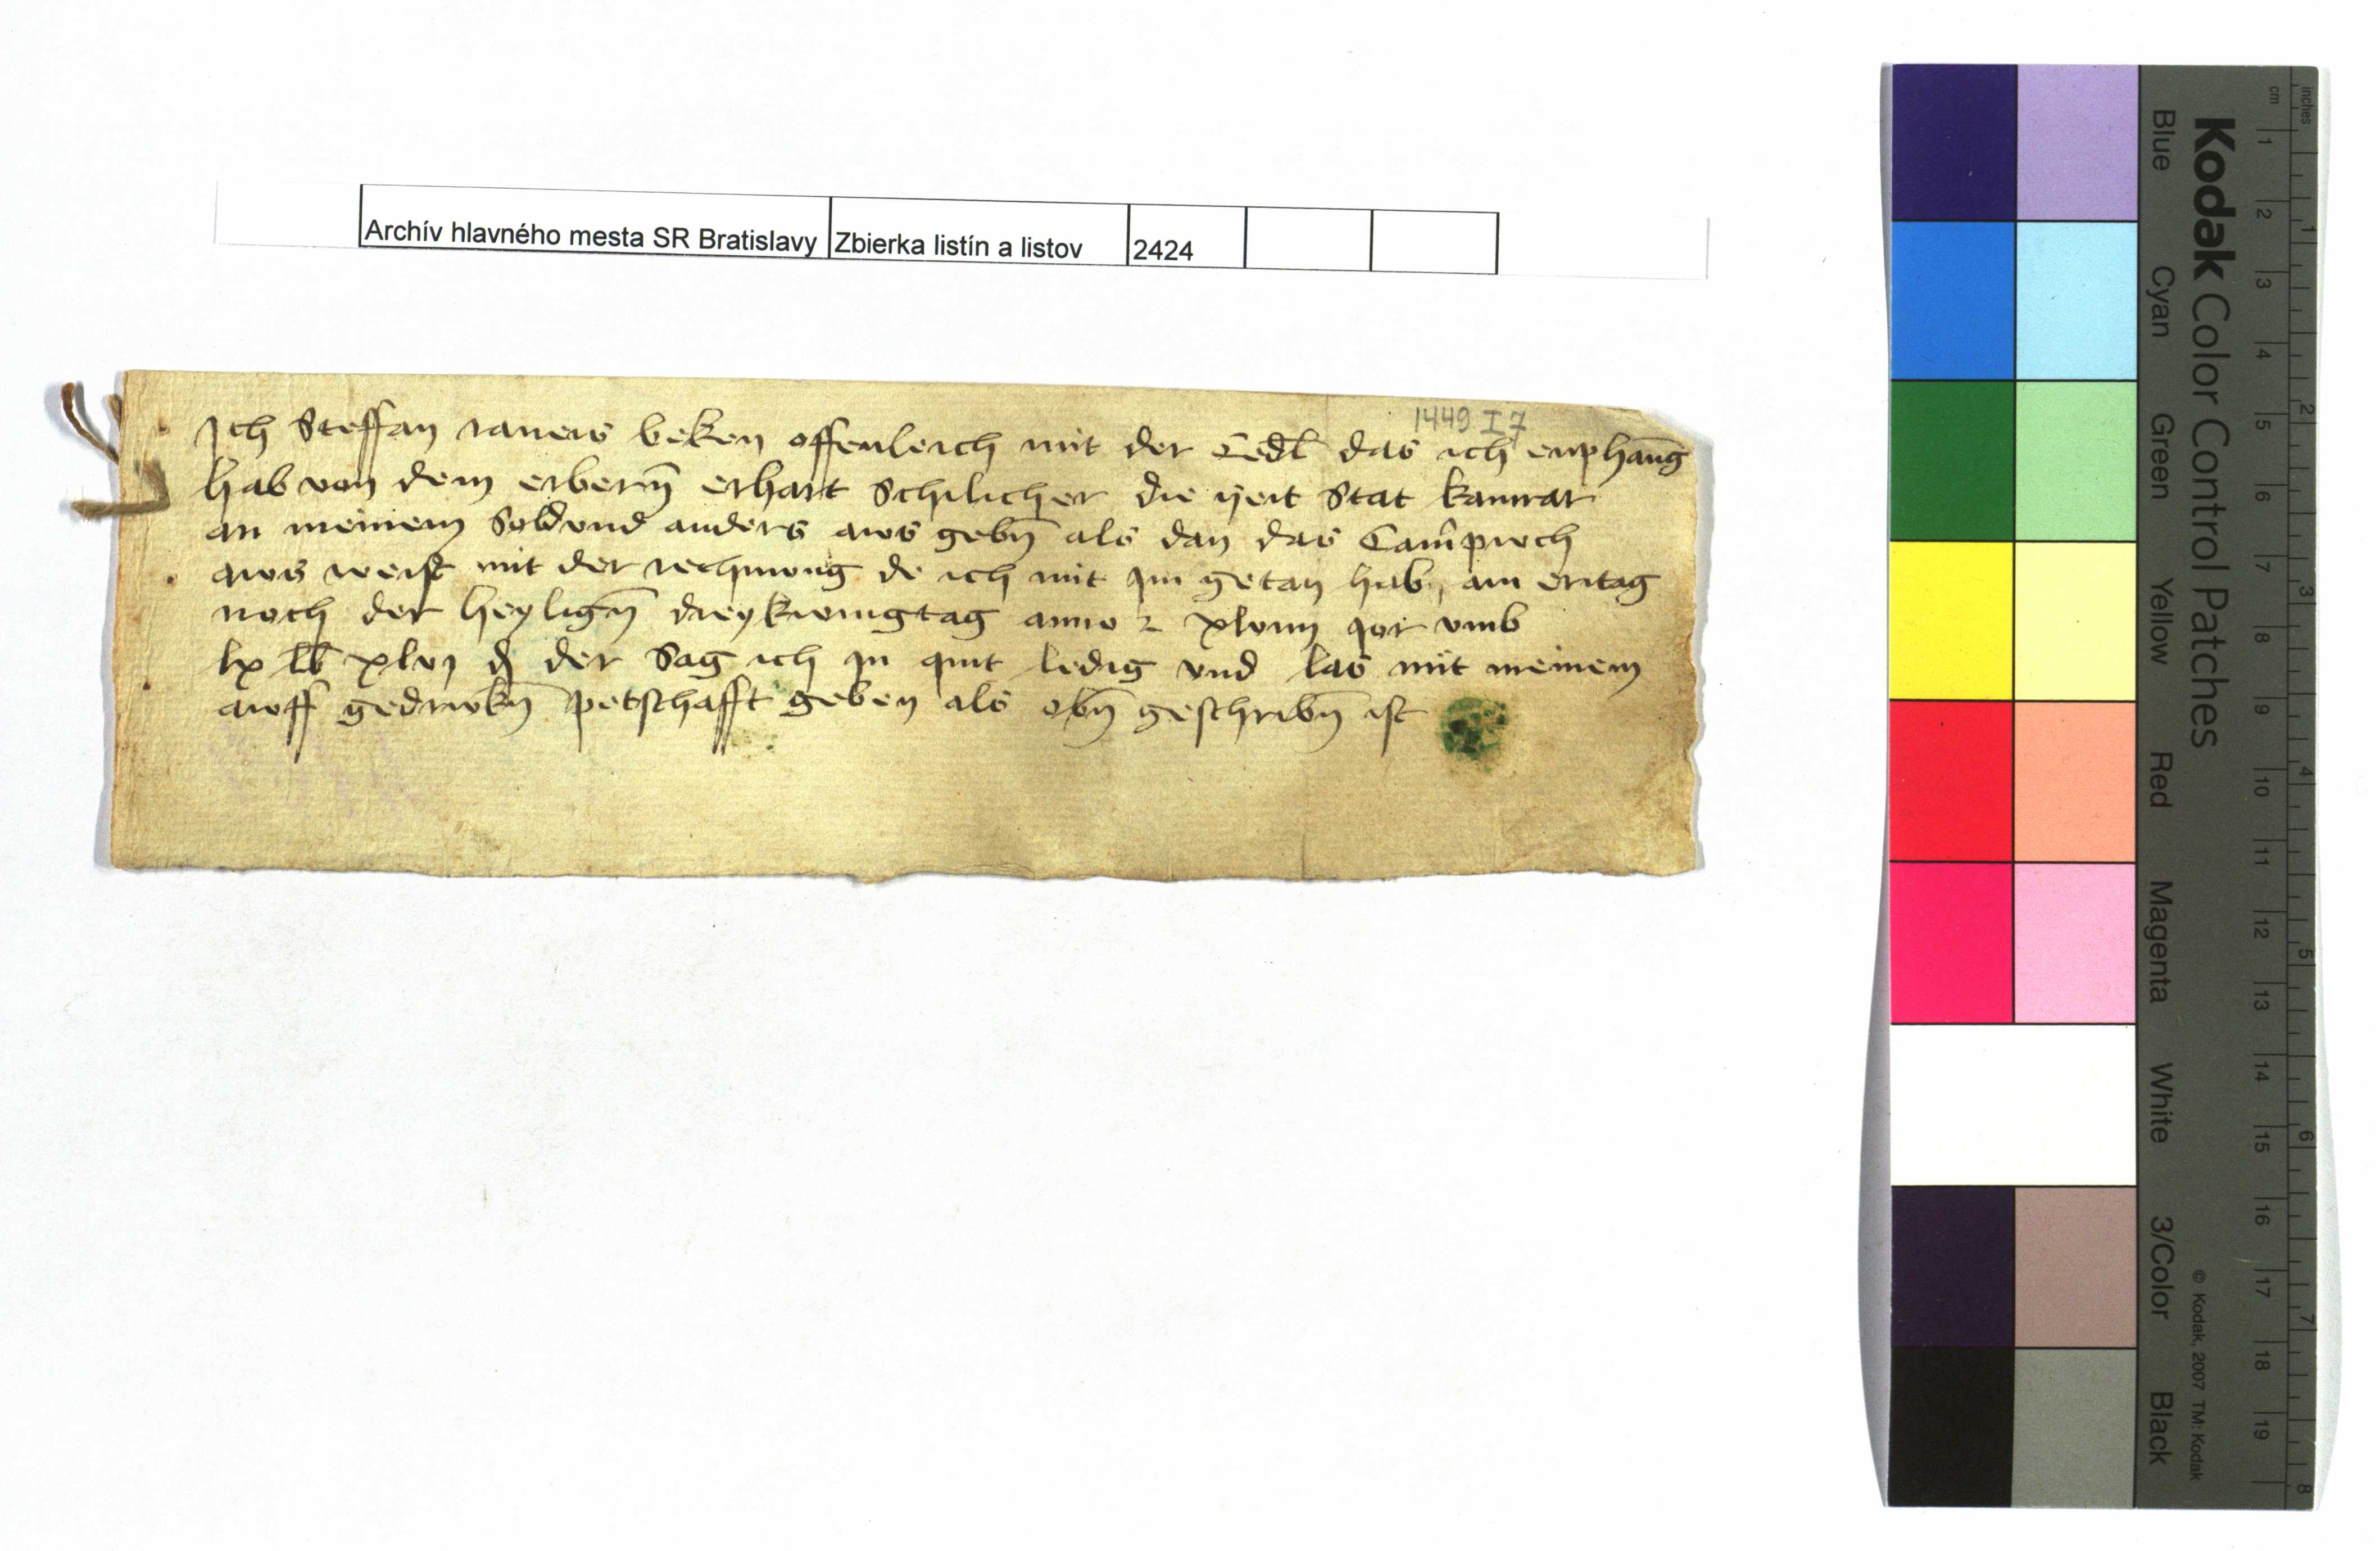 Archív hlavného mesta SR Bratislavy Zbierka listín a listov 2424
1449 I 7
Ich Steffan raneis beken offenleich mit der Cedl das ich enphang̅
hab von dem erbern̅ erhart Schilicher die ӱeit Stat kamrar
an meinem Sold vnd anders aws gebn̅ als dan das Cam̅pwch
aws weist mit der rechnung de ich mit Im getan hab, am eritag
noch der heylign̅ dreykwnigtag anno ꝛ xlviiij Jor vmb
lx lb xlvj d der Sag ich In quit ledig vnd las mit meinem
awff gedrwkn̅ petschafft geben als obn̅ geschribn̅ ist
Kodak Color Control Patches
Blue Cyan Green Yellow Red Magenta White 3/Color Black
© Kodak, 2007 TM: Kodak
cm 1 2 3 4 5 6 7 8 9 10 11 12 13 14 15 16 17 18 19
inches 1 2 3 4 5 6 7 8